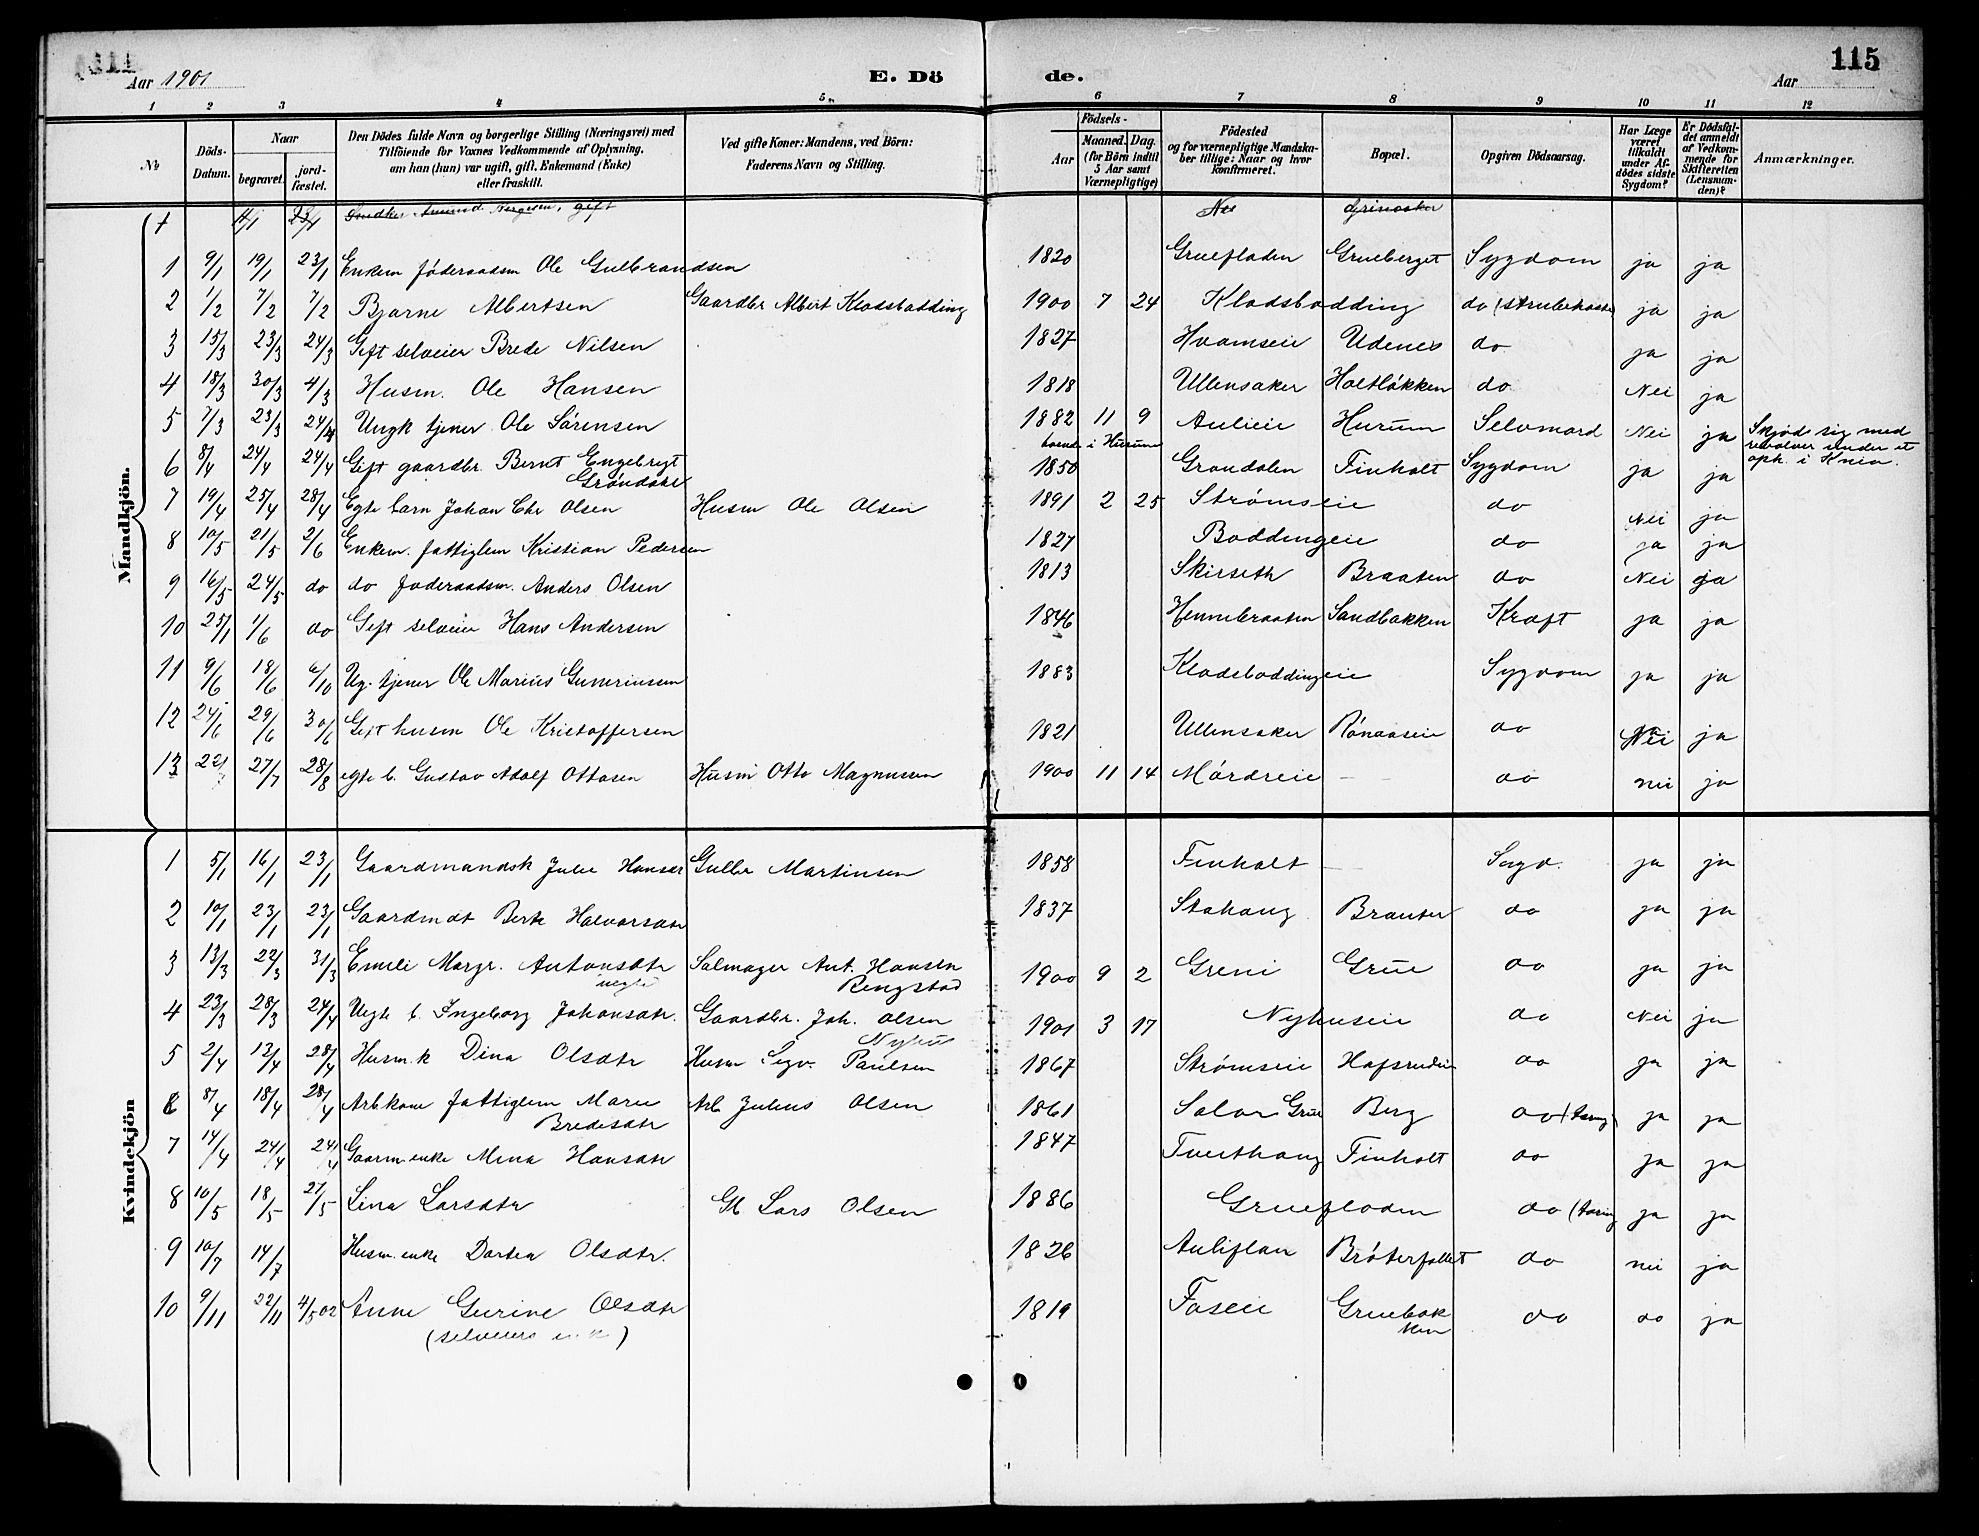 Aar 1901 E. Dö de. Aar 115
1 2 3 4 5 6 7 8 9 10 11 12
№ Döds-Datum. Naar begravet. jord-fæstet. Den Dödes fulde Navn og borgerlige Stilling (Næringsvei) med Tilföiende for Voxnes Vedkommende af Oplysning, om han (hun) var ugift, gift, Enkemand (Enke) eller fraskilt. Ved gifte Koner: Mandens, ved Börn: Faderens Navn og Stilling. Födsels- Aar Maaned. Dag. (for Börn indtil 5 Aar samt Værnepligtige) Födested og for værnepligtige Mandskaber tillige: Naar og hvor konfirmeret. Bopæl. Opgiven Dödsaarsag. Har Læge været tilkaldt under Afdödes sidste Sygdom? Er Dödsfaldet anmeldt af Vedkommende for Skifteretten (Lensmanden)? Anmærkninger.
Mandkjön.
gift Nes Grinaaker
1 9/1 19/1 23/1 Enkem föderaadsm Ole Gulbrandsen 1820 Gruefladen Grueberget Sygdom ja ja
2 1/2 7/2 7/2 Bjarne Albertsen Gaardbr Albert Klodsbodding 1900 7 24 Klodsbodding do (strubehoste ja ja
3 15/3 23/3 24/3 Gift selveier Brede Nilsen 1827 Hvamseie Udenes do ja ja
4 18/3 30/3 4/3 Husm. Ole Hansen 1818 Ullensaker Holtløkken do Nei ja
5 7/3 23/3 24/4 Ungk tjener Ole Sørensen 1882 11 9 Aulieie Hurum Selvmord Nei ja Skjød sig med revolver under et oph. i Knia.
boende i Hurum
6 8/4 24/4 24/4 Gift gaardbr. Bernt Engebrigt Grøndalen 1850 Grøndalen Finholt Sygdom ja ja
7 19/4 25/4 28/4 Egte barn Johan Chr Olsen Husm Ole Olsen 1891 2 25 Strømseie do Nei ja
8 10/5 21/5 2/6 Enkem. fattiglem Kristian Pedersen 1827 Boddingeie do ja ja
9 16/5 24/5 do do føderaadsm. Anders Olsen 1813 Skirseth Braaten do Nei ja
10 25/1 1/6 do Gift selveier Hans Andersen 1846 Hennebraaten Sandbakken Kræft ja ja
11 9/6 18/6 6/10 Ug. tjener Ole Marius Guneriussen 1883 Klodsboddingeie Sygdom ja ja
12 24/6 29/6 30/6 Gift husm Ole Kristoffersen 1821 Ullensaker Rønaaseie do Nei ja
13 22/7 27/7 28/8 egte b. Gustav Adolf Ottosen Husm Otto Magnussen 1900 11 14 Mørdreie – do nei ja
Kvindekjön
1 5/1 16/1 23/1 Gaardmandsk Julie Hansdr Gulbr Martinsen 1858 Finholt – Sygd. ja ja
2 10/1 23/1 23/1 Gaardmdt Berte Halvorsdtr 1837 Stahaug Braater do ja ja
3 13/3 22/3 31/3 Emeli Margr. Antonsdtr uegte Salmager Ant. Hansen Ringstad 1900 9 2 Greni Grue do ja ja
4 23/3 28/3 24/4 Uegte b. Ingeborg Johansdtr. Gaardbr. Joh. Olsen Nyhus 1901 3 17 Nyhuseie do Nei ja
5 2/4 13/4 28/4 Husm.k Dina Olsdtr Husm Sigv. Paulsen 1867 Strømseie Hafsrudeie do ja ja
6 8/4 18/4 28/4 Arbkone fattiglem Marie Bredesdtr Arb Julius Olsen 1861 Solør Grue Berg do (tæring ja ja
7 14/4 24/4 24/4 Gaarm.enke Mina Hansdtr 1847 Tverthaug Finholt do ja ja
8 10/5 18/5 27/5 Lina Larsdtr Gb Lars Olsen 1886 Gruefloden do (tæring ja ja
9 10/7 14/7 Husm.enke Dortea Olsdtr. 1826 Auliflan Brøterfallet do nei ja
10 9/11 22/11 4/5 02 Anne Gurine Olsdtr 1819 Foseie Gruebakken do do ja
(selveiers enke)